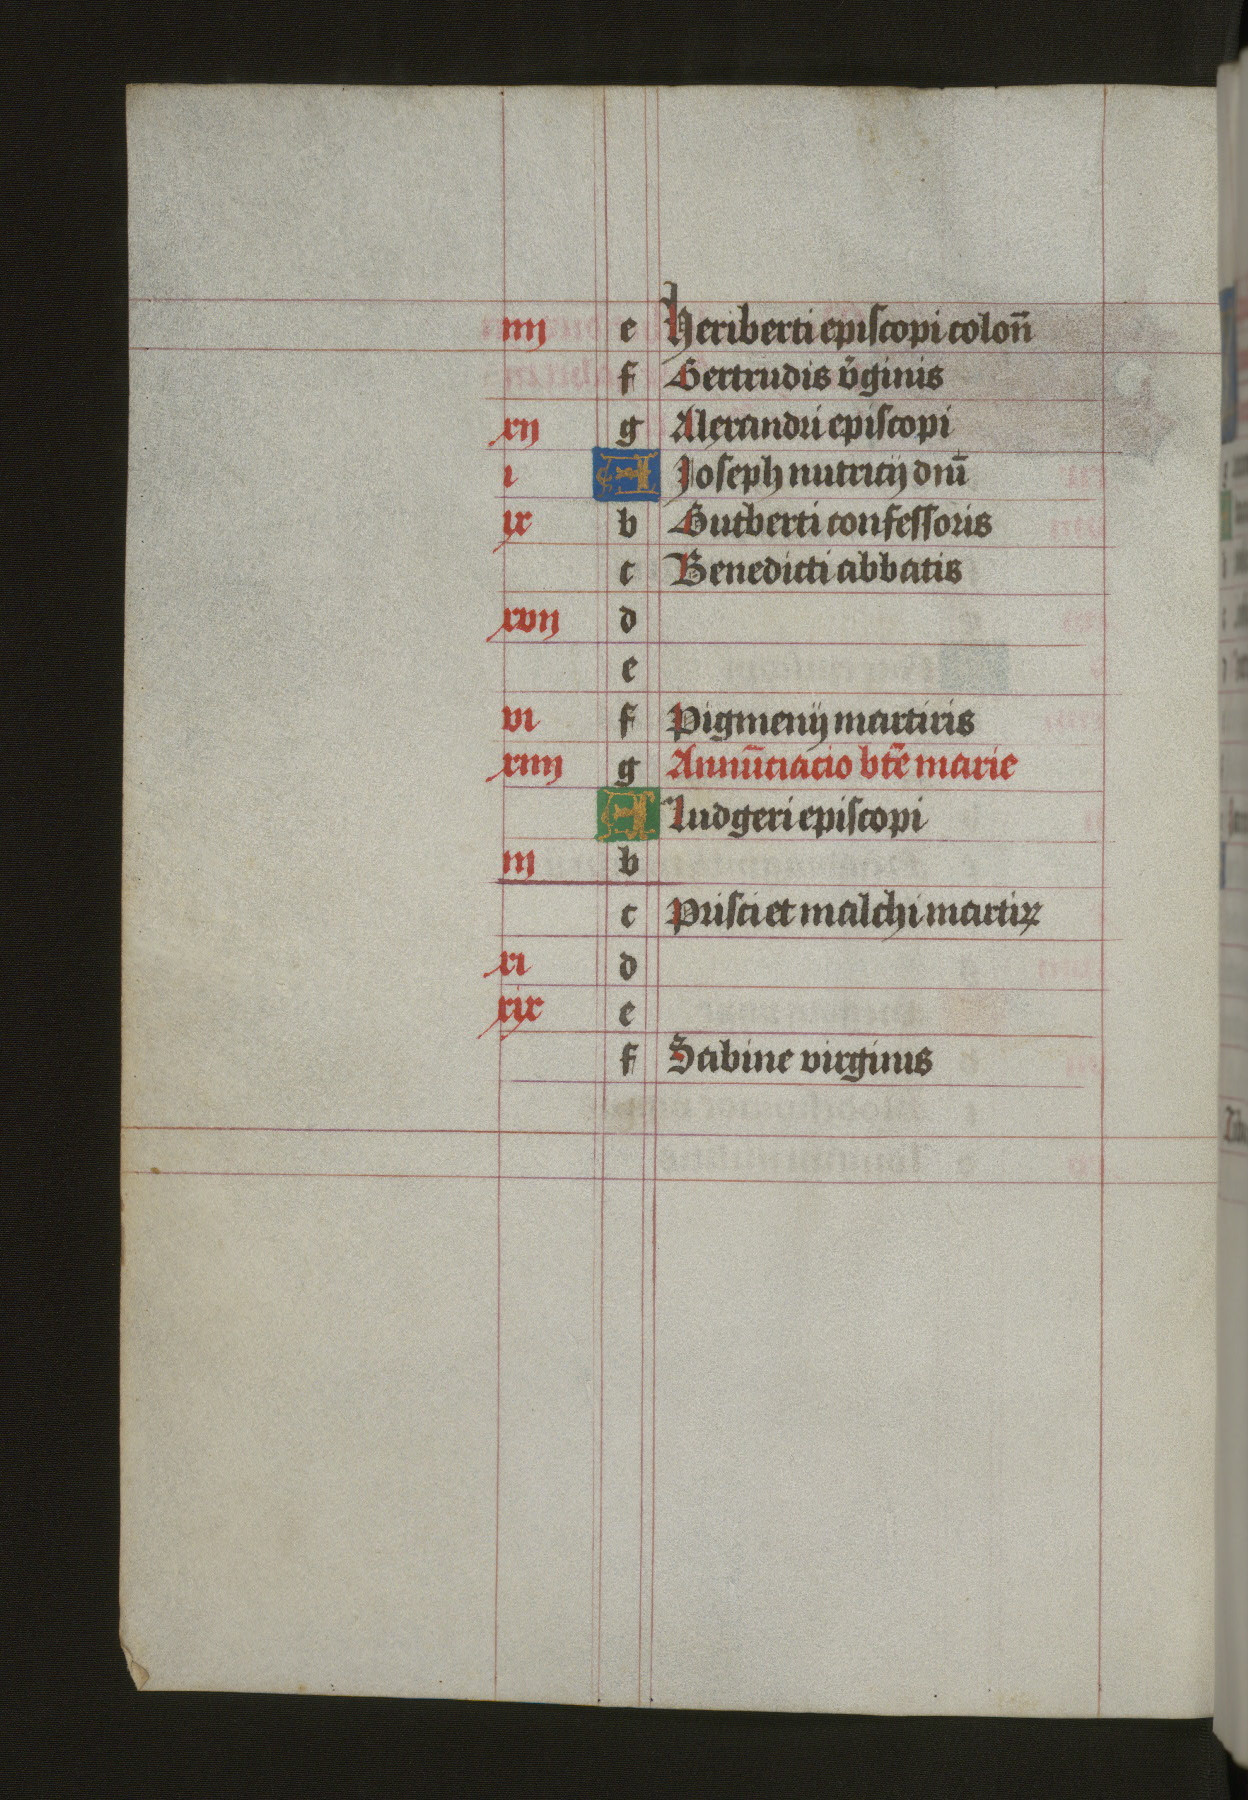 iiij e Heriberti episcopi colon̄
f Gertrudis v̄ginis
xij g Alexandri episcopi
i A Joseph nutricij dn̄i
ix b Gutberti confessoris
c Benedicti abbatis
xvij d
e
vi f Pigmenij martiris
xiiij g Annūciacio bt̄e marie
A Ludgeri episcopi
iij b
c Prisci et malchi martiꝝ
xi d
xix e
f Sabine virginis